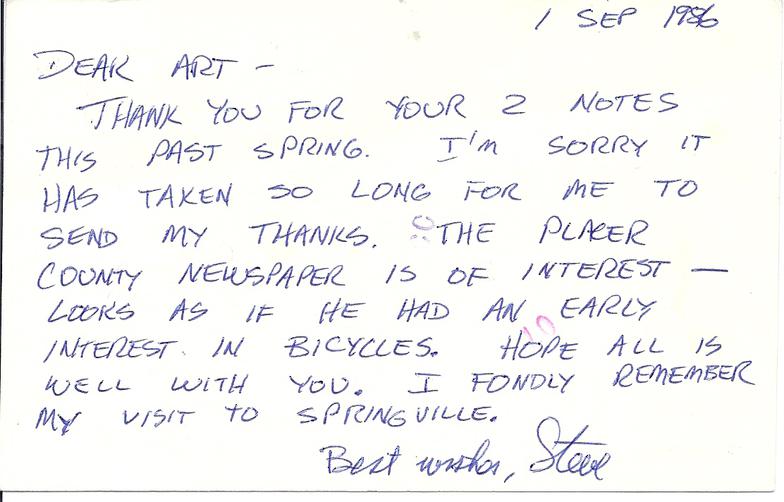 1 SEP 1986
DEAR ART -
THANK YOU FOR YOUR 2 NOTES
THIS PAST SPRING. I'M SORRY IT
HAS TAKEN SO LONG FOR ME TO
SEND MY THANKS. THE PLACER
COUNTY NEWSPAPER IS OF INTEREST —
LOOKS AS IF HE HAD AN EARLY
INTEREST IN BICYCLES. HOPE ALL IS
WELL WITH YOU. I FONDLY REMEMBER
MY VISIT TO SPRINGVILLE.
Best wishes, Steve